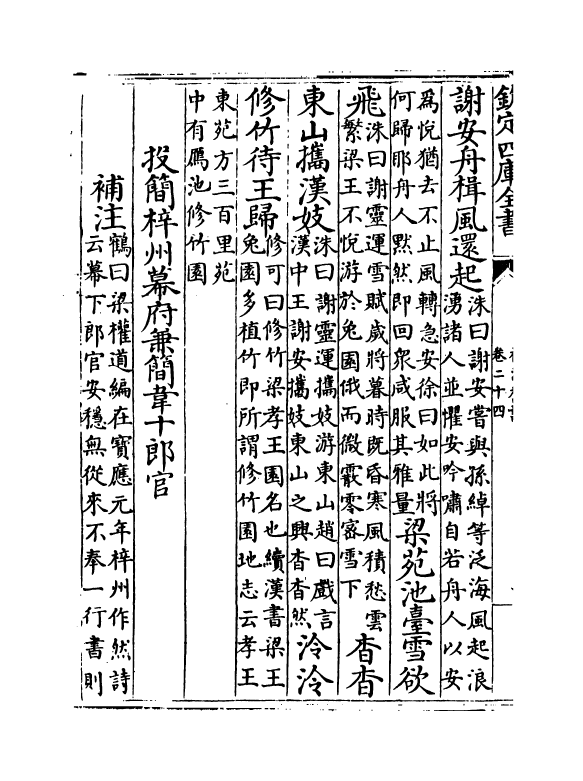 欽定四庫全書
卷二十四
謝安舟楫風還起洙曰謝安嘗與孫綽等泛海風起浪
湧諸人並懼安吟嘯自若舟人以安
為悅猶去不止風轉急安徐曰如此將
何歸耶舟人黙然即回衆咸服其雅量梁苑池臺雪欲
飛洙曰謝靈運雪賦歲將暮時既昏寒風積愁雲
繁梁王不悅游於兔園俄而微霰零密雪下杳杳
東山攜漢妓洙曰謝靈運攜妓游東山趙曰戲言
漢中王謝安攜妓東山之興杳杳然泠泠
修竹待王歸修可曰修竹梁孝王園名也續漢書梁王
兔園多植竹即所謂修竹園地志云孝王
東苑方三百里苑
中有鴈池修竹園
投簡梓州幕府兼簡韋十郎官
補注鶴曰梁權道編在寳應元年梓州作然詩
云幕下郎官安穩無從來不奉一行書則